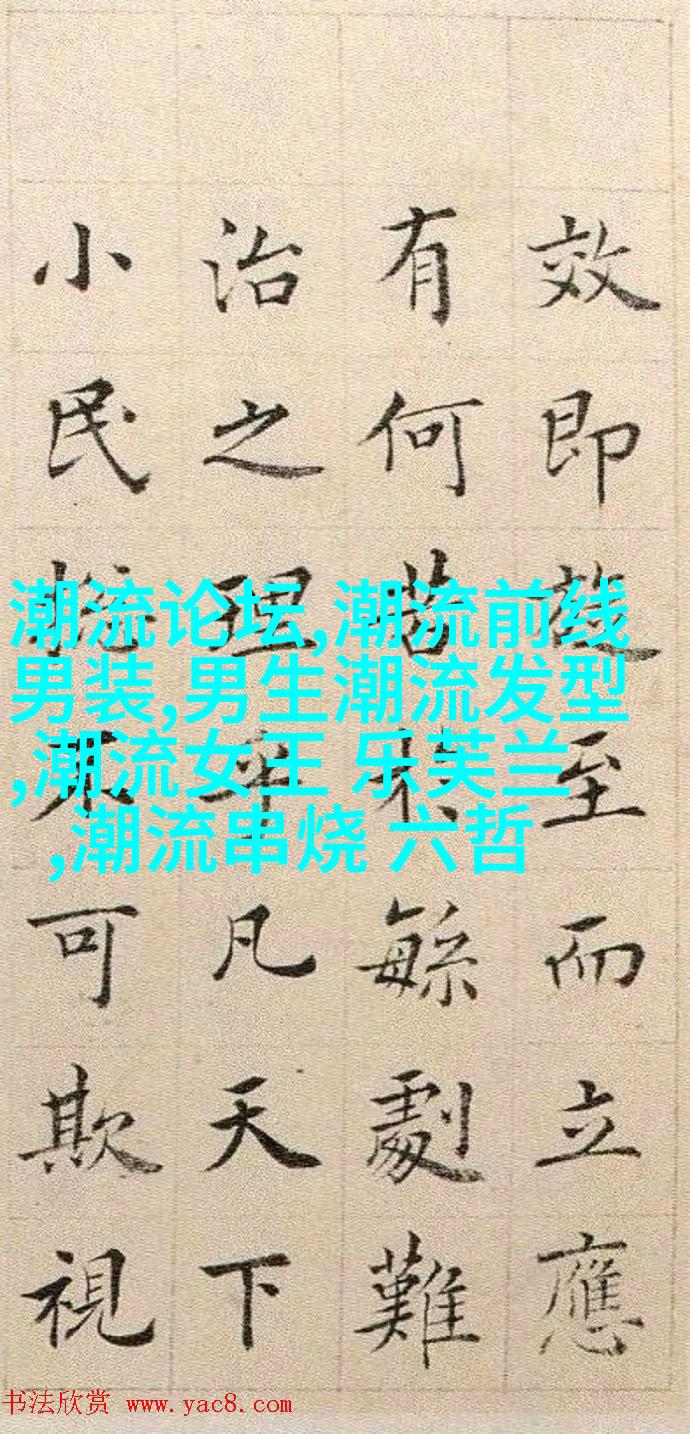 效即至而立應
有何緐劇難
治之理凡天下
小民不可欺視
潮流论坛,潮流前线
男装,男生潮流发型
,潮流女王 乐芙兰
,潮流串烧 六哲
书法欣赏 www.yac8.com